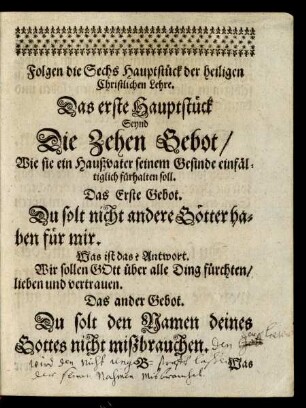 Folgen die Sechs Hauptstück der heiligen
Christlichen Lehre.
Das erste Hauptstück
Seynd
Die Zehen Gebot/
Wie sie ein Haußvater seinem Gesinde einfäl-
tiglich fürhalten soll.
Das Erste Gebot.
Du solt nicht andere Götter ha-
ben für mir.
Was ist das? Antwort.
Wir sollen GOtt über alle Ding fürchten/
lieben und vertrauen.
Das ander Gebot.
Du solt den Namen deines
Gottes nicht mißbrauchen. den
wird den nicht
B
Was
der seinen Nahmen misbrauchet